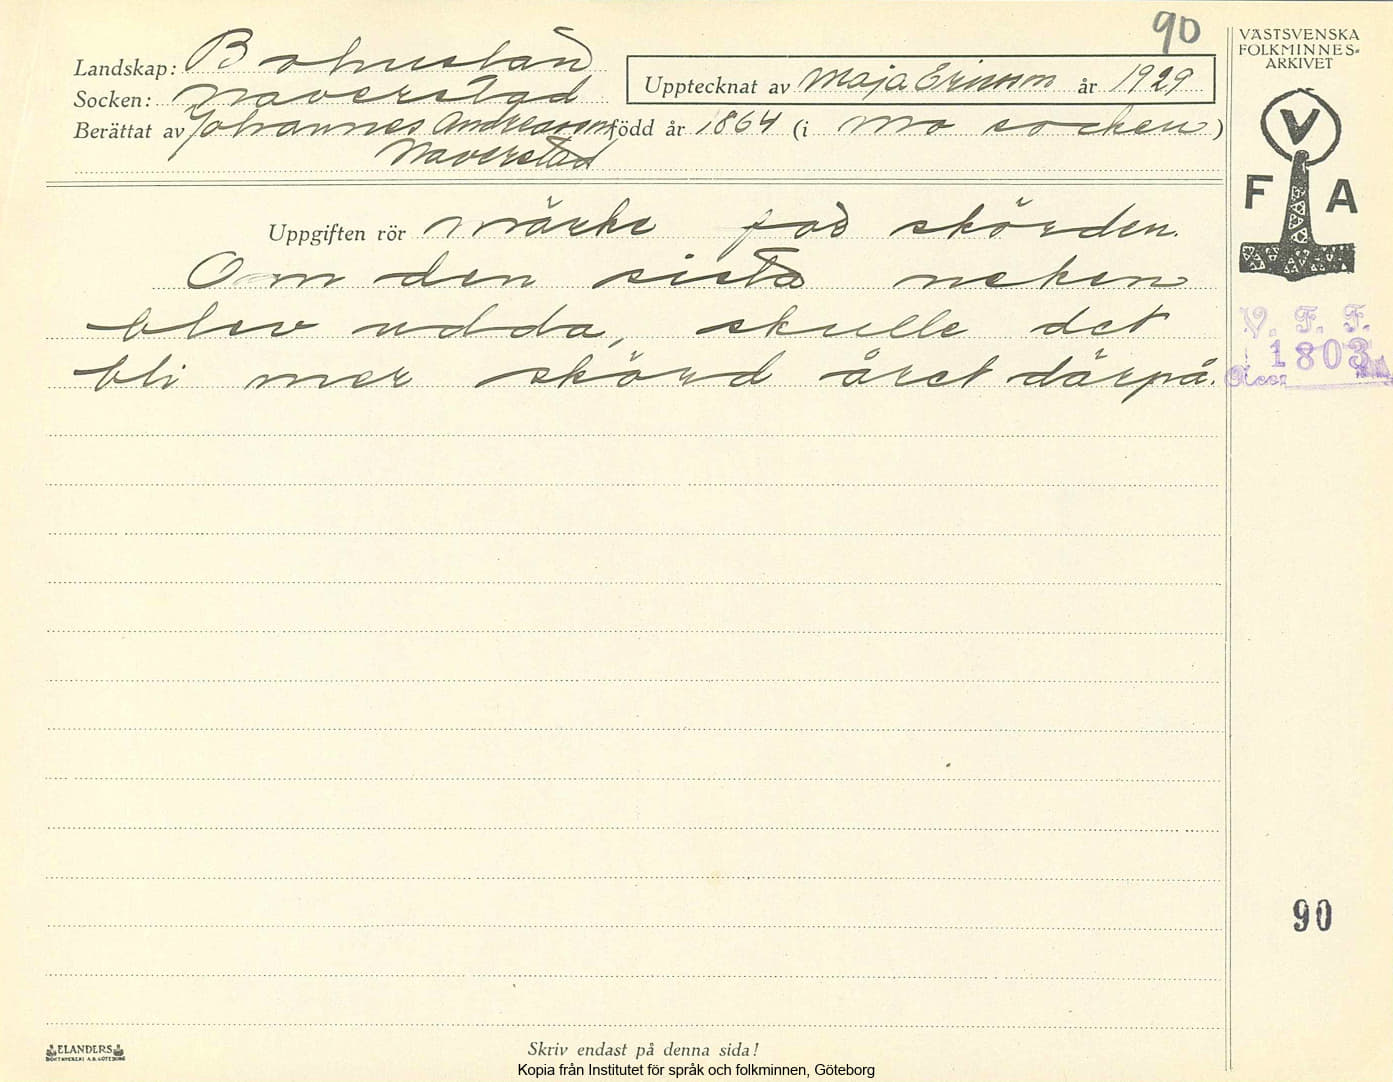 90
Landskap: Bohuslän
Socken: Naverstad
Upptecknat av Maja Ericson år 1929
Berättat av Johannes Andreasson född år 1864 (i Mo socken)
Naverstad
Uppgiften rör märke för skörden.
Om den sista neken
blev udda, skulle det
bli mer skörd året därpå.
VÄSTSVENSKA
FOLKMINNES-
ARKIVET
V
F A
V. F. F.
1803
Acc.
90
ELANDERS
BOKTRYCKERI A.B. GÖTEBORG
Skriv endast på denna sida!
Kopia från Institutet för språk och folkminnen, Göteborg